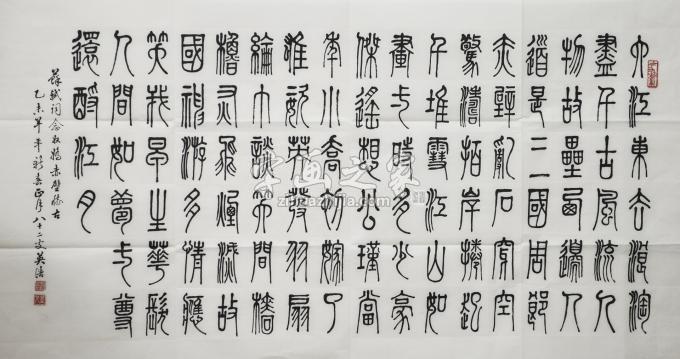 大江東去浪淘
盡千古風流人
物故壘西邊人
道是三國周郎
赤壁亂石穿空
驚濤拍岸捲起
千堆雪江山如
畫一時多少豪
傑遙想公瑾當
年小喬初嫁了
雄姿英發羽扇
綸巾談笑間檣
櫓灰飛煙滅故
國神游多情應
笑我早生華髮
人間如夢一尊
還酹江月
蘇軾詞念奴嬌赤壁懷古
乙未羊年新春正月八十二叟英
字画之家
zihuazhijia.com